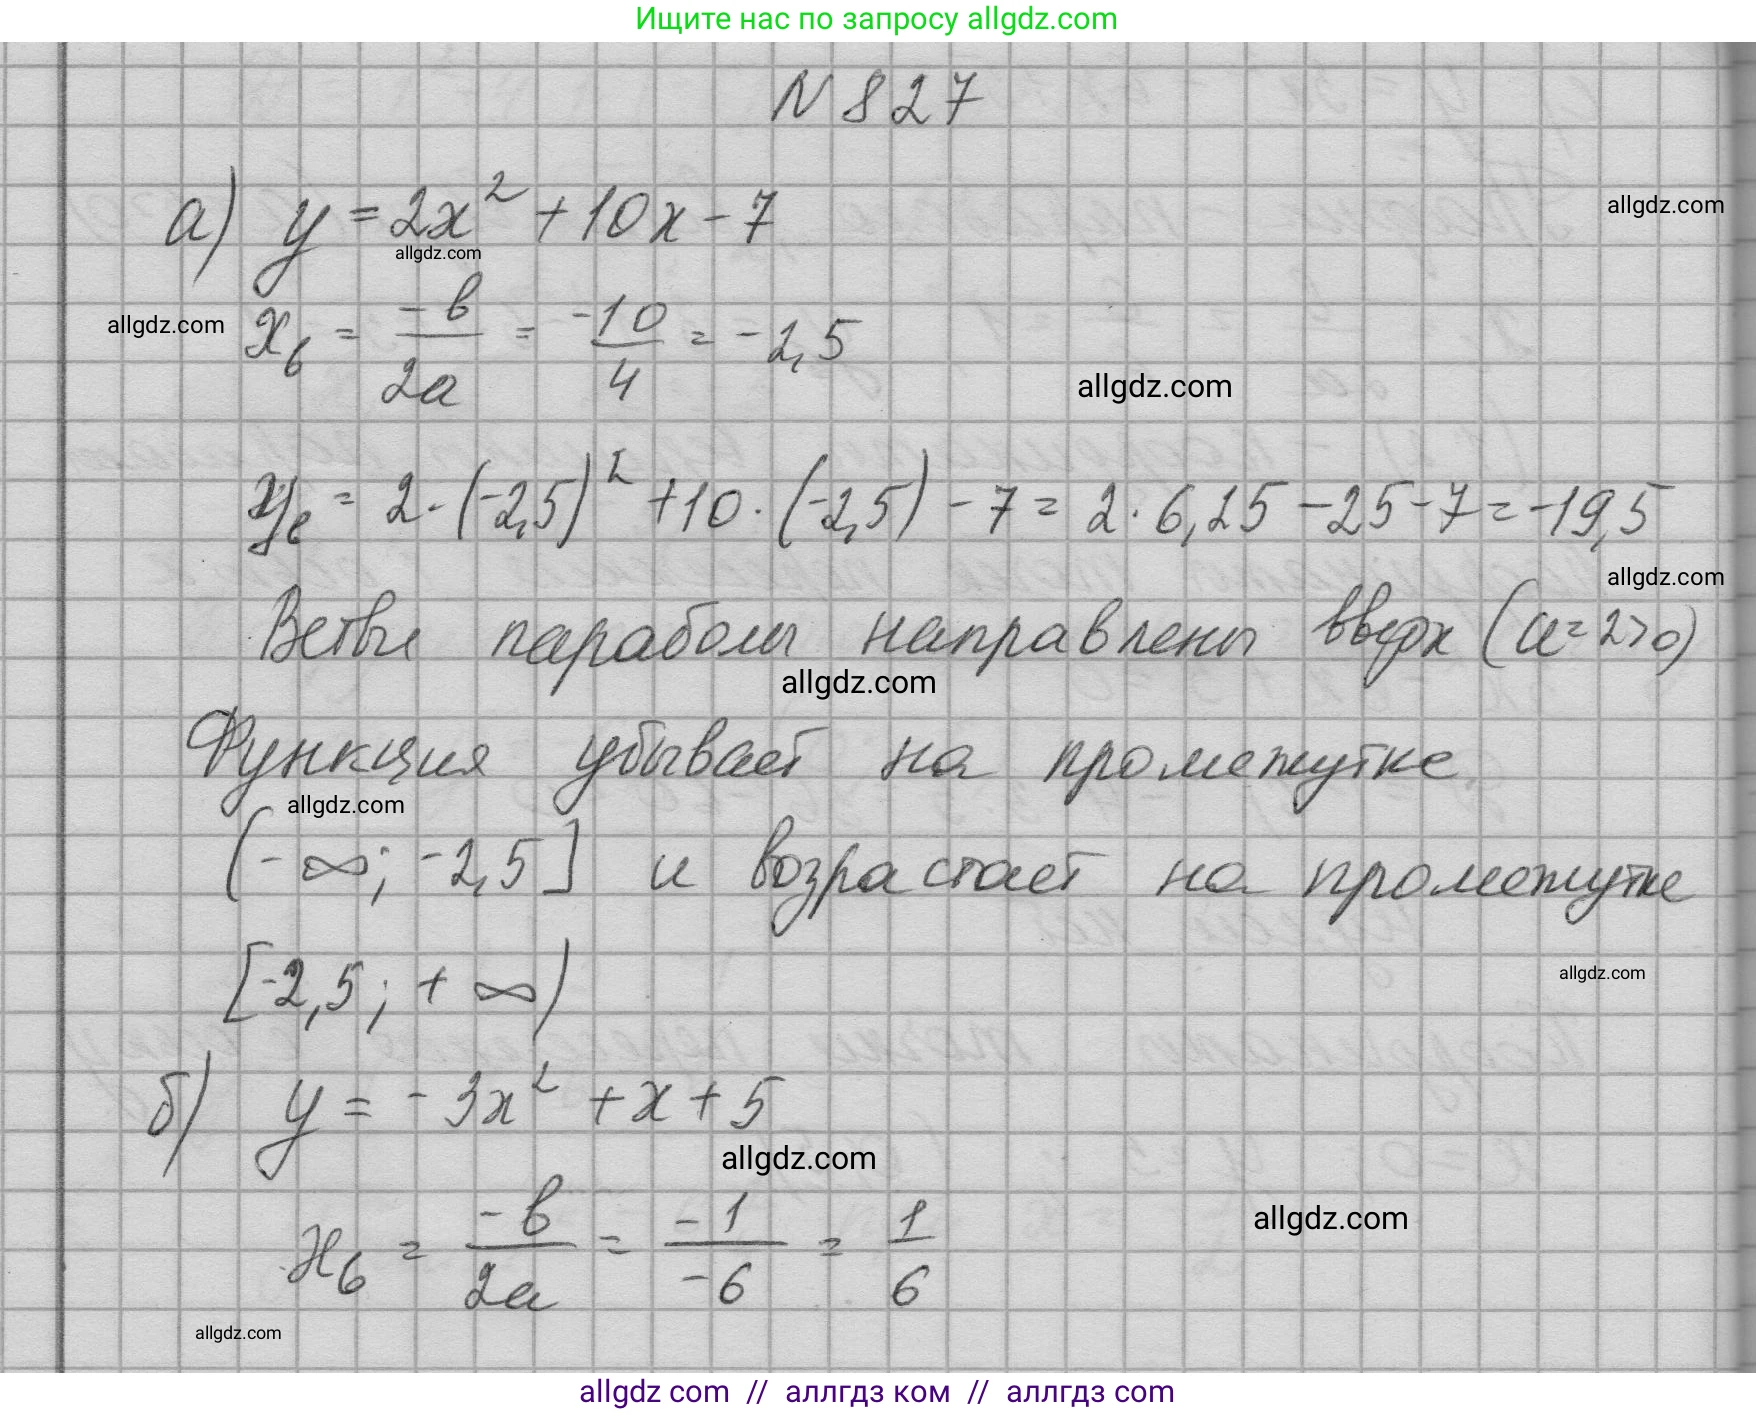 Ищите нас по запросу allgdz.com
N 827
а) y = 2x² + 10x - 7
allgdz.com
allgdz.com
allgdz.com
xв = -в/2a = -10/4 = -2,5
allgdz.com
yв = 2·(-2,5)² + 10·(-2,5) - 7 = 2·6,25 - 25 - 7 = -19,5
allgdz.com
Ветви параболы направлены вверх (a = 2>0)
allgdz.com
Функция убывает на промежутке
allgdz.com
(-∞; -2,5] и возрастает на промежутке
[-2,5; +∞)
allgdz.com
б) y = -3x² + x + 5
allgdz.com
xв = -в/2a = -1/-6 = 1/6
allgdz.com
allgdz.com
allgdz com // аллгдз ком // аллгдз com